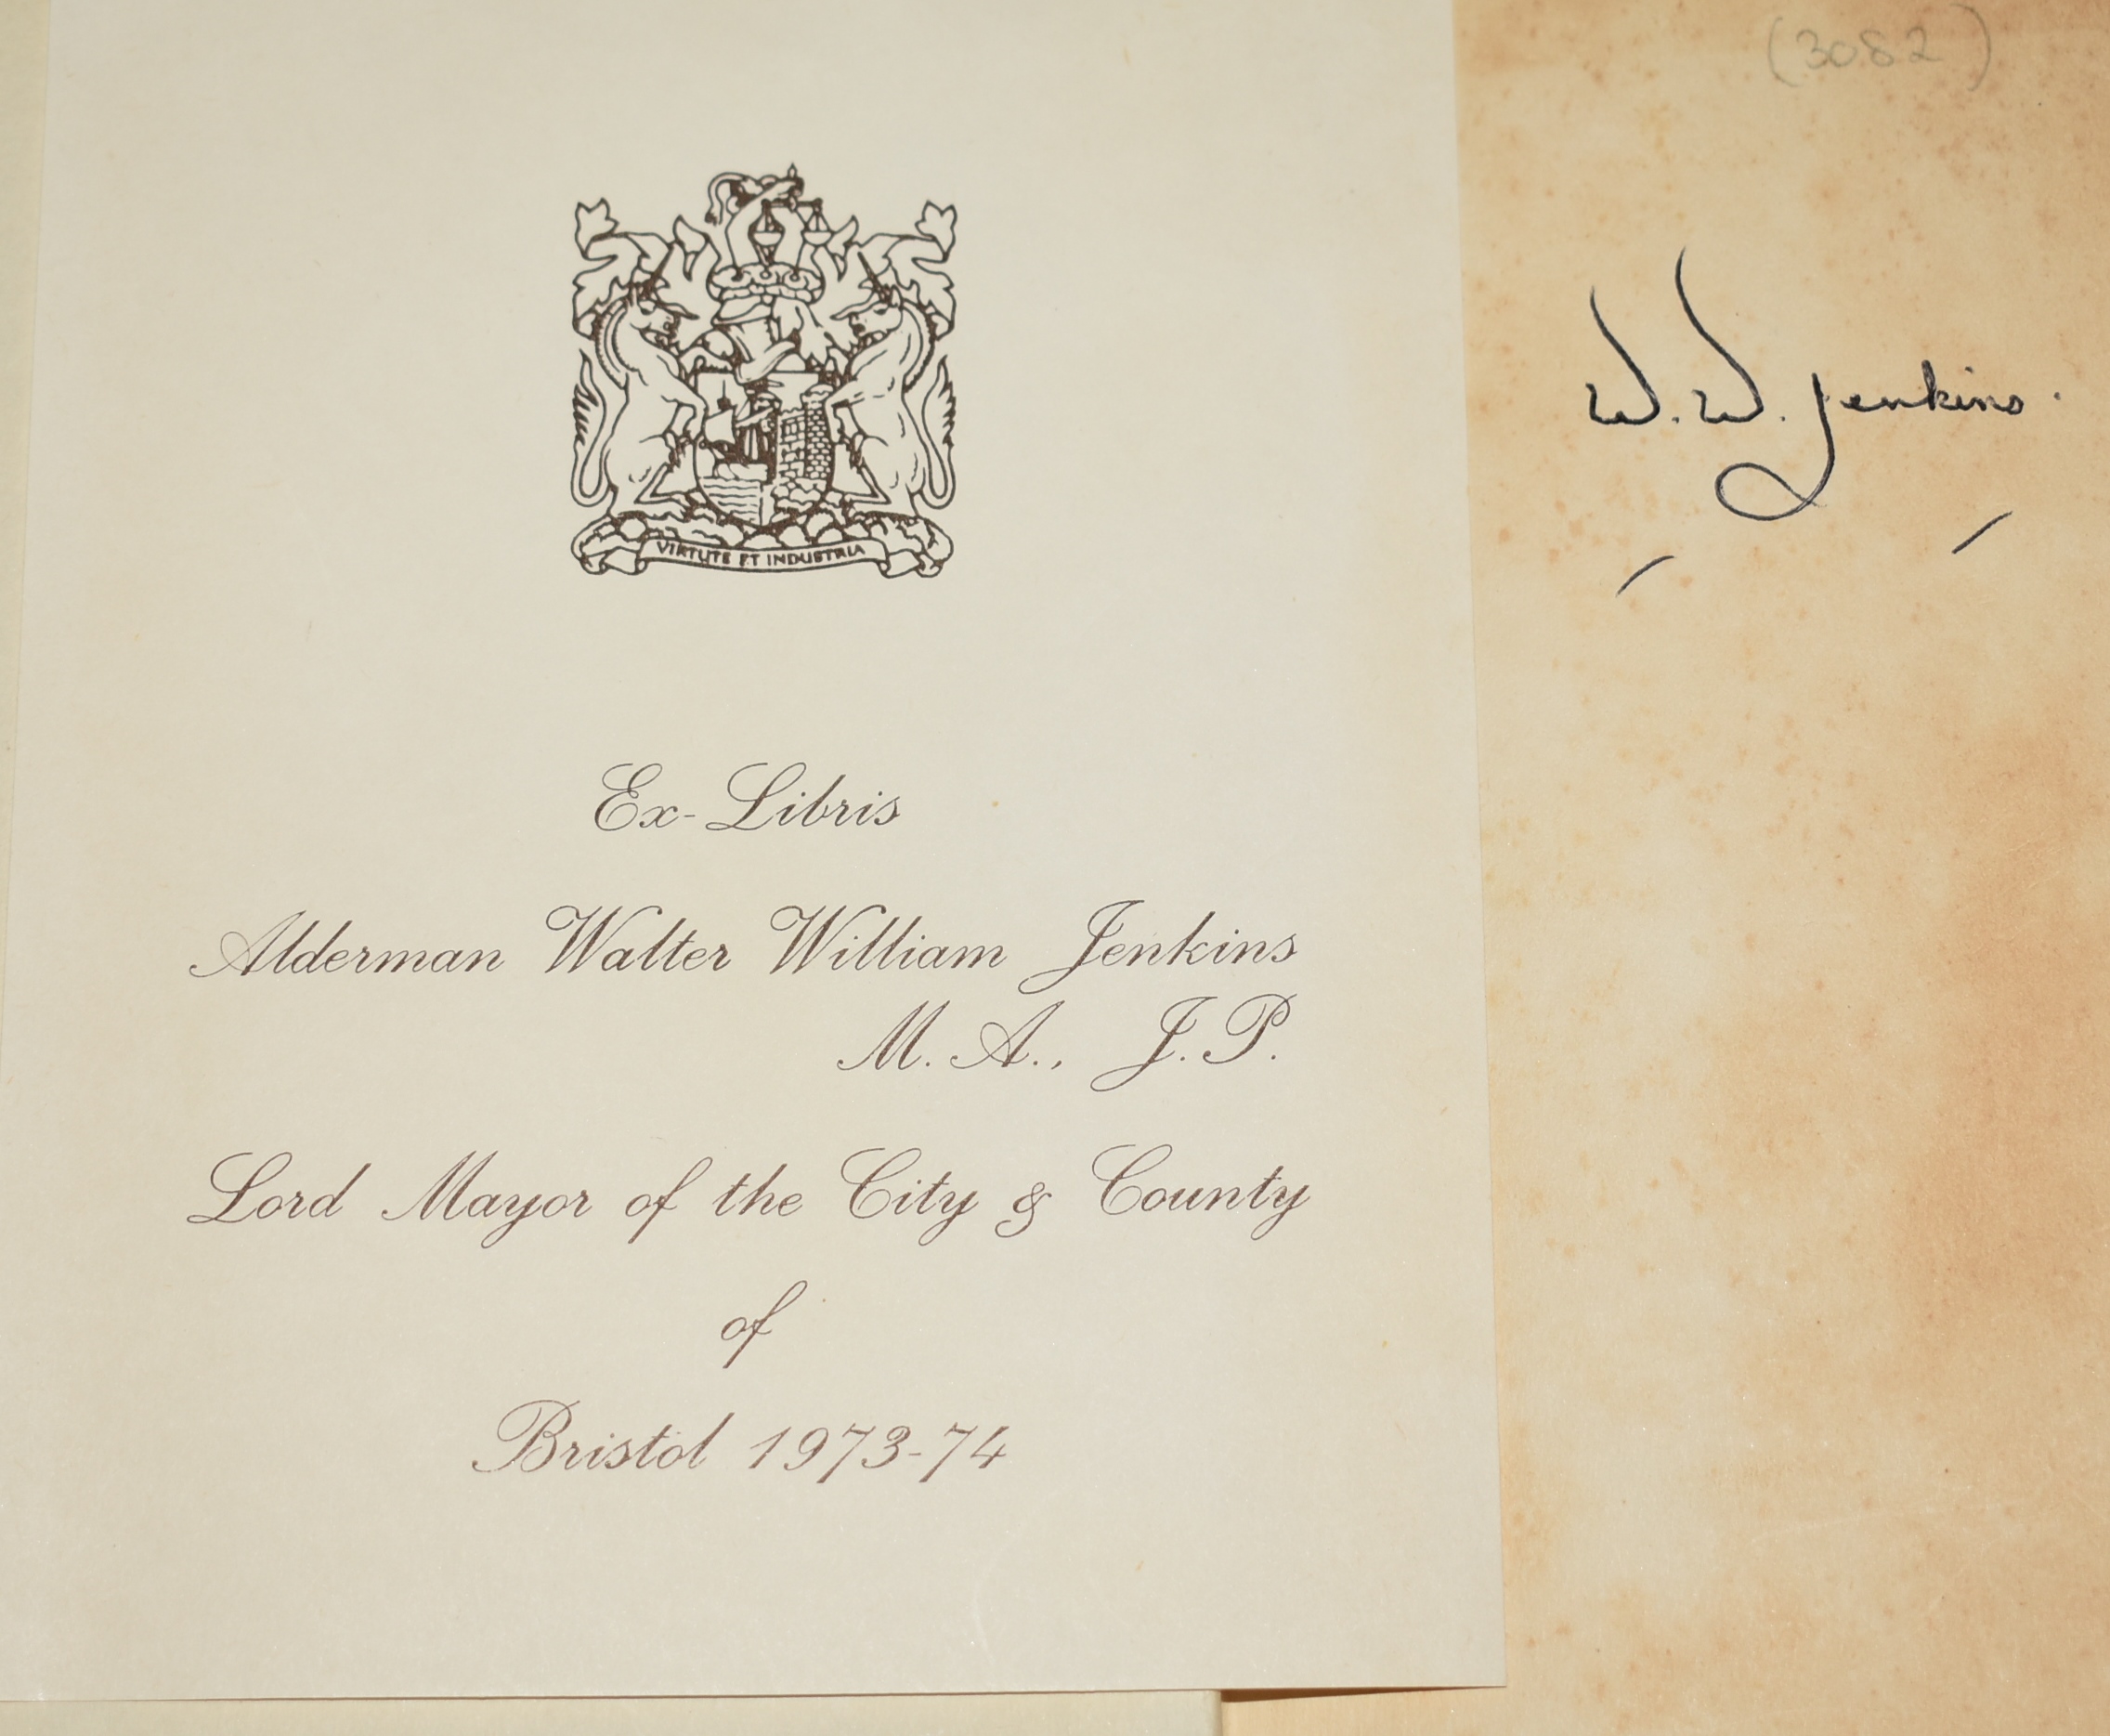 (3082)
W. W. Jenkins.
VIRTUTE ET INDUSTRIA
Ex-Libris
Alderman Walter William Jenkins
M. A., J. P.
Lord Mayor of the City & County
of
Bristol 1973-74